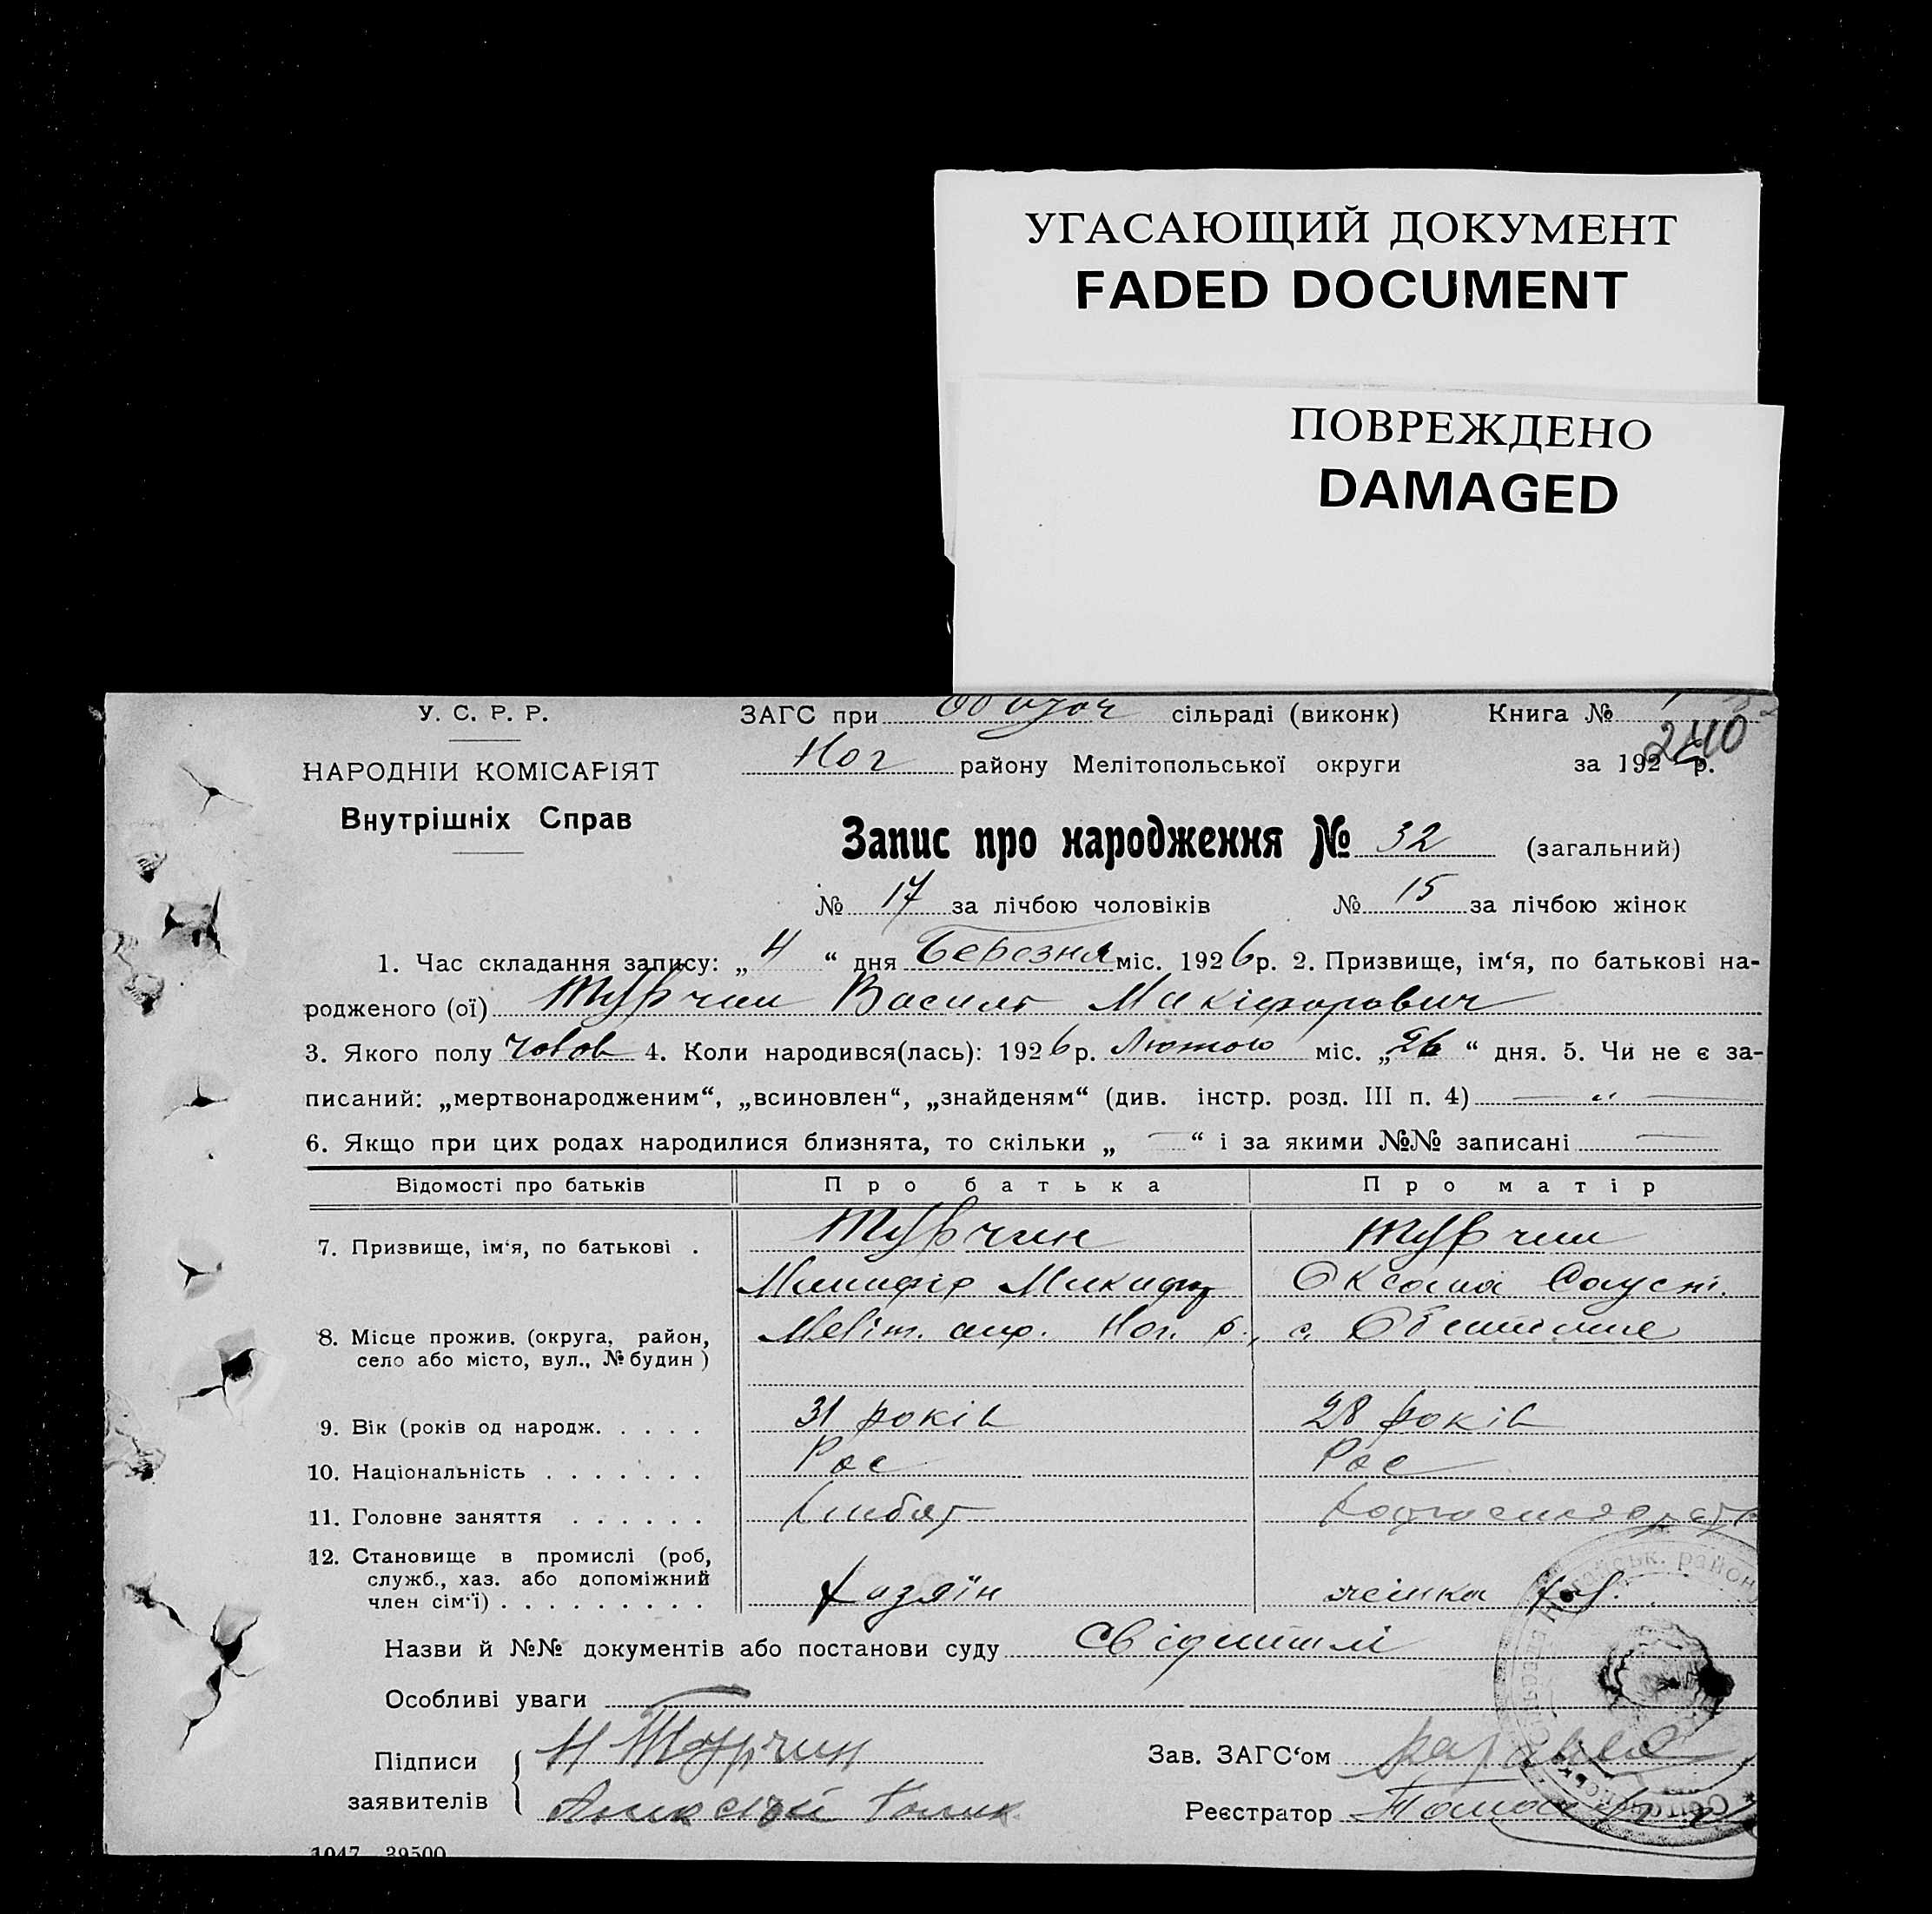 УГАСАЮЩИЙ ДОКУМЕНТ
FADED DOCUMENT
ПОВРЕЖДЕНО
DAMAGED
У. С. Р. Р.
НАРОДНІЙ КОМІСАРІЯТ
Внутрішніх Справ
ЗАГС при сільраді (виконк) Книга № 1
240
Ног району Мелітопольської округи за 192 р.
Запис про народження № 32 (загальний)
№ 17 за лічбою чоловіків № 15 за лічбою жінок
1. Час складання запису: „ 4 “ дня Березня міс. 1926 р. 2. Призвище, ім‘я, по батькові на-
родженого (ої) Турчин Василь Микіфорович
3. Якого полу чолов 4. Коли народився(лась): 1926 р. Лютого міс. „ 26 “ дня. 5. Чи не є за-
писаний: „мертвонародженим“, „всиновлен“, „знайденям“ (див. інстр. розд. III п. 4) — “ —
6. Якщо при цих родах народилися близнята, то скільки „ — “ і за якими №№ записані —
Відомості про батьків Про батька Про матір
7. Призвище, ім‘я, по батькові . Турчин Турчин
Микифір Микиф Оксана Сауст.
8. Місце прожив. (округа, район, Меліт. окр. Ног. р., с.
село або місто, вул., № будин )
9. Вік (років од народж. . . . . 31 років 28 років
10. Національність . . . . . . . Рос Рос
11. Головне заняття . . . . . . хлібор
12. Становище в промислі (роб,
служб., хаз. або допоміжний
член сім‘ї) . . . . . . . . . хозяїн жінка
Назви й №№ документів або постанови суду
Особливі уваги —
Підписи Н Турчин Зав. ЗАГС‘ом
заявителів Реєстратор
1047 39500